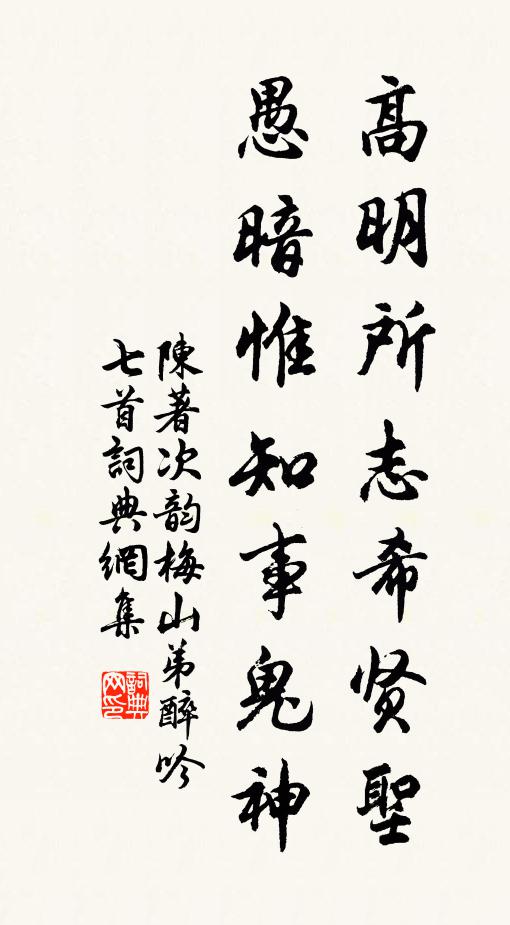 高明所志希贤聖
愚暗惟知事鬼神
陳著次韵梅山弟醉吟
七首詞典網集
詞典网印